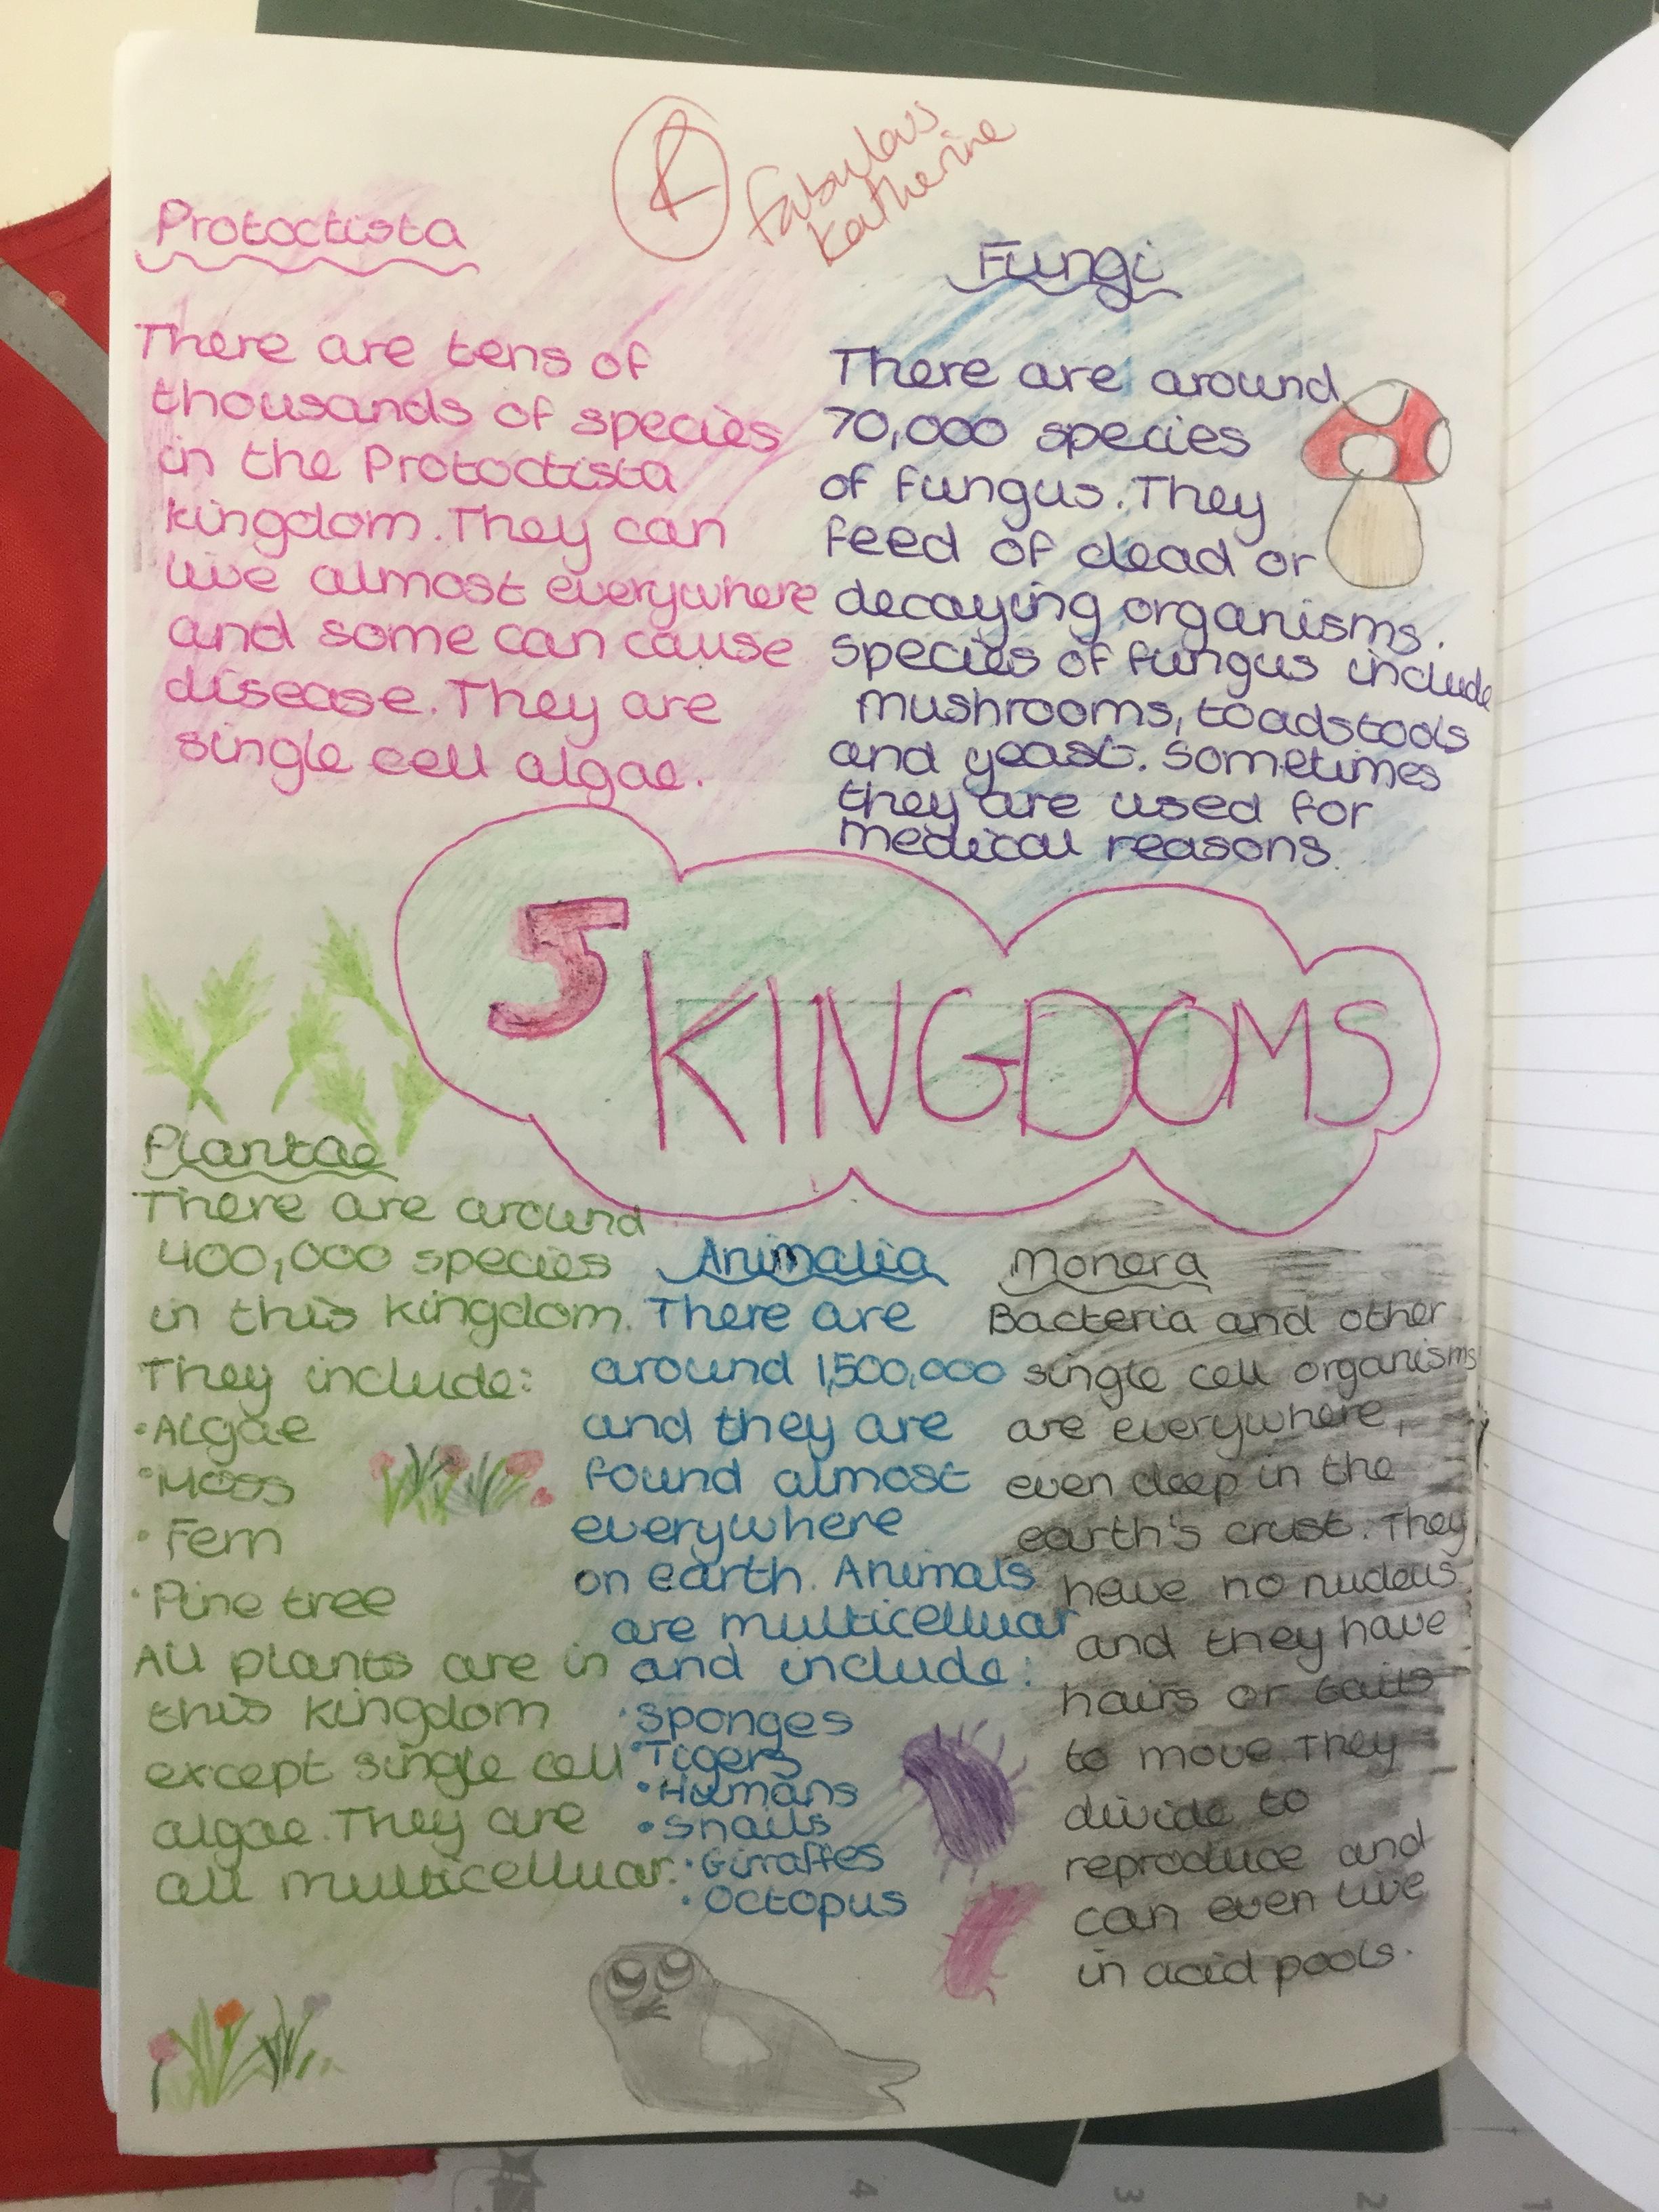 K
fabulous
Katherine
Protoctista
There are tens of
thousands of species
in the Protoctista
kingdom. They can
live almost everywhere
and some can cause
disease. They are
single cell algae.
Fungi
There are around
70,000 species
of fungus. They
feed of dead or
decaying organisms.
Species of fungus include
mushrooms, toadstools
and yeast. Sometimes
they are used for
medical reasons.
5 KINGDOMS
Plantae
There are around
400,000 species
in this kingdom.
They include:
• Algae
• Moss
• Fern
• Pine tree
All plants are in
this kingdom
except single cell
algae. They are
all multicelluar.
Animalia
There are
around 1,500,000
and they are
found almost
everywhere
on earth. Animals
are multicelluar
and include:
• Sponges
• Tigers
• Humans
• Snails
• Giraffes
• Octopus
Monera
Bacteria and other
single cell organisms
are everywhere,
even deep in the
earth's crust. They
have no nucleus
and they have
hairs or tails
to move. They
divide to
reproduce and
can even live
in acid pools.
4
3
2
1